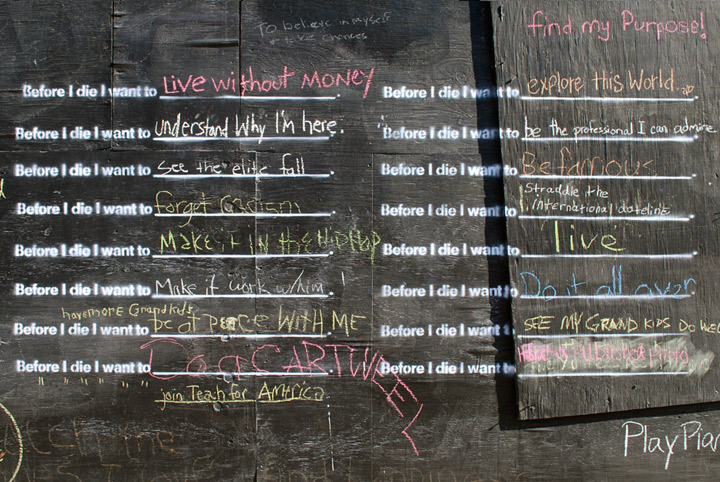 To believe in myself
& take chances
Before I die I want to Live without MONEY.
Before I die I want to understand Why I'm here.
Before I die I want to see the elite fall.
Before I die I want to forget
Before I die I want to MAKE it IN the HipHop
Before I die I want to Make it work w/him!
have more Grandkids
Before I die I want to be at peace WITH ME
Before I die I want to Do a CARTWHEEL
" " " " " " join Teach for America
find my Purpose!
Before I die I want to explore this World...
Before I die I want to be the professional I can admire
Before I die I want to Be famous.
Straddle the
Before I die I want to international dateline.
Before I die I want to live.
Before I die I want to Do it all over.
Before I die I want to SEE MY GRAND KIDS DO WELL
Before I die I want to
Play Pian